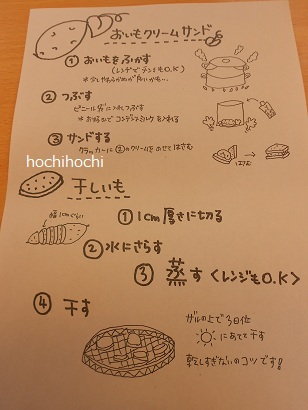 おいもクリームサンド
① おいもをふかす
(レンジでチンもO.K)
*少しやわらかめが良いかも…
② つぶす
ビニール袋に入れつぶす
*お好みでコンデンスミルクを入れる
③ サンドする
クラッカーに②のクリームをのせてはさむ
はさむ
hochihochi
干しいも
幅1cmぐらい
① 1cm厚さに切る
② 水にさらす
③ 蒸す<レンジもO.K>
④ 干す
ザルの上で3日位
にあてて干す
乾しすぎないのコツです!